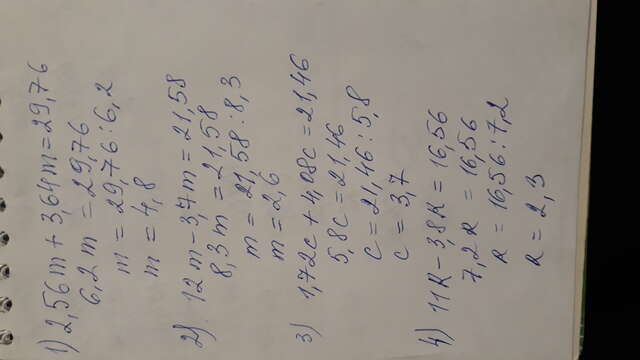 1) 2,56m + 3,64m = 29,76
6,2m = 29,76
m = 29,76 : 6,2
m = 4,8
2) 12m - 3,7m = 21,58
8,3m = 21,58
m = 21,58 : 8,3
m = 2,6
3) 1,72c + 4,08c = 21,46
5,8c = 21,46
c = 21,46 : 5,8
c = 3,7
4) 11k - 3,8k = 16,56
7,2k = 16,56
k = 16,56 : 7,2
k = 2,3